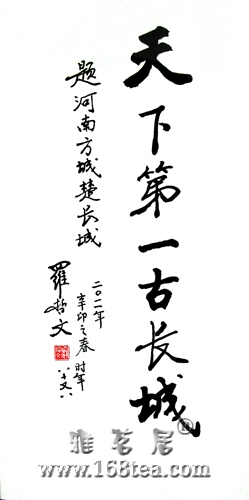 天下第一古长城
题河南方城楚长城
二〇一一年
辛卯之春 时年
八十又八
羅哲文
雅茗居
www.168tea.com